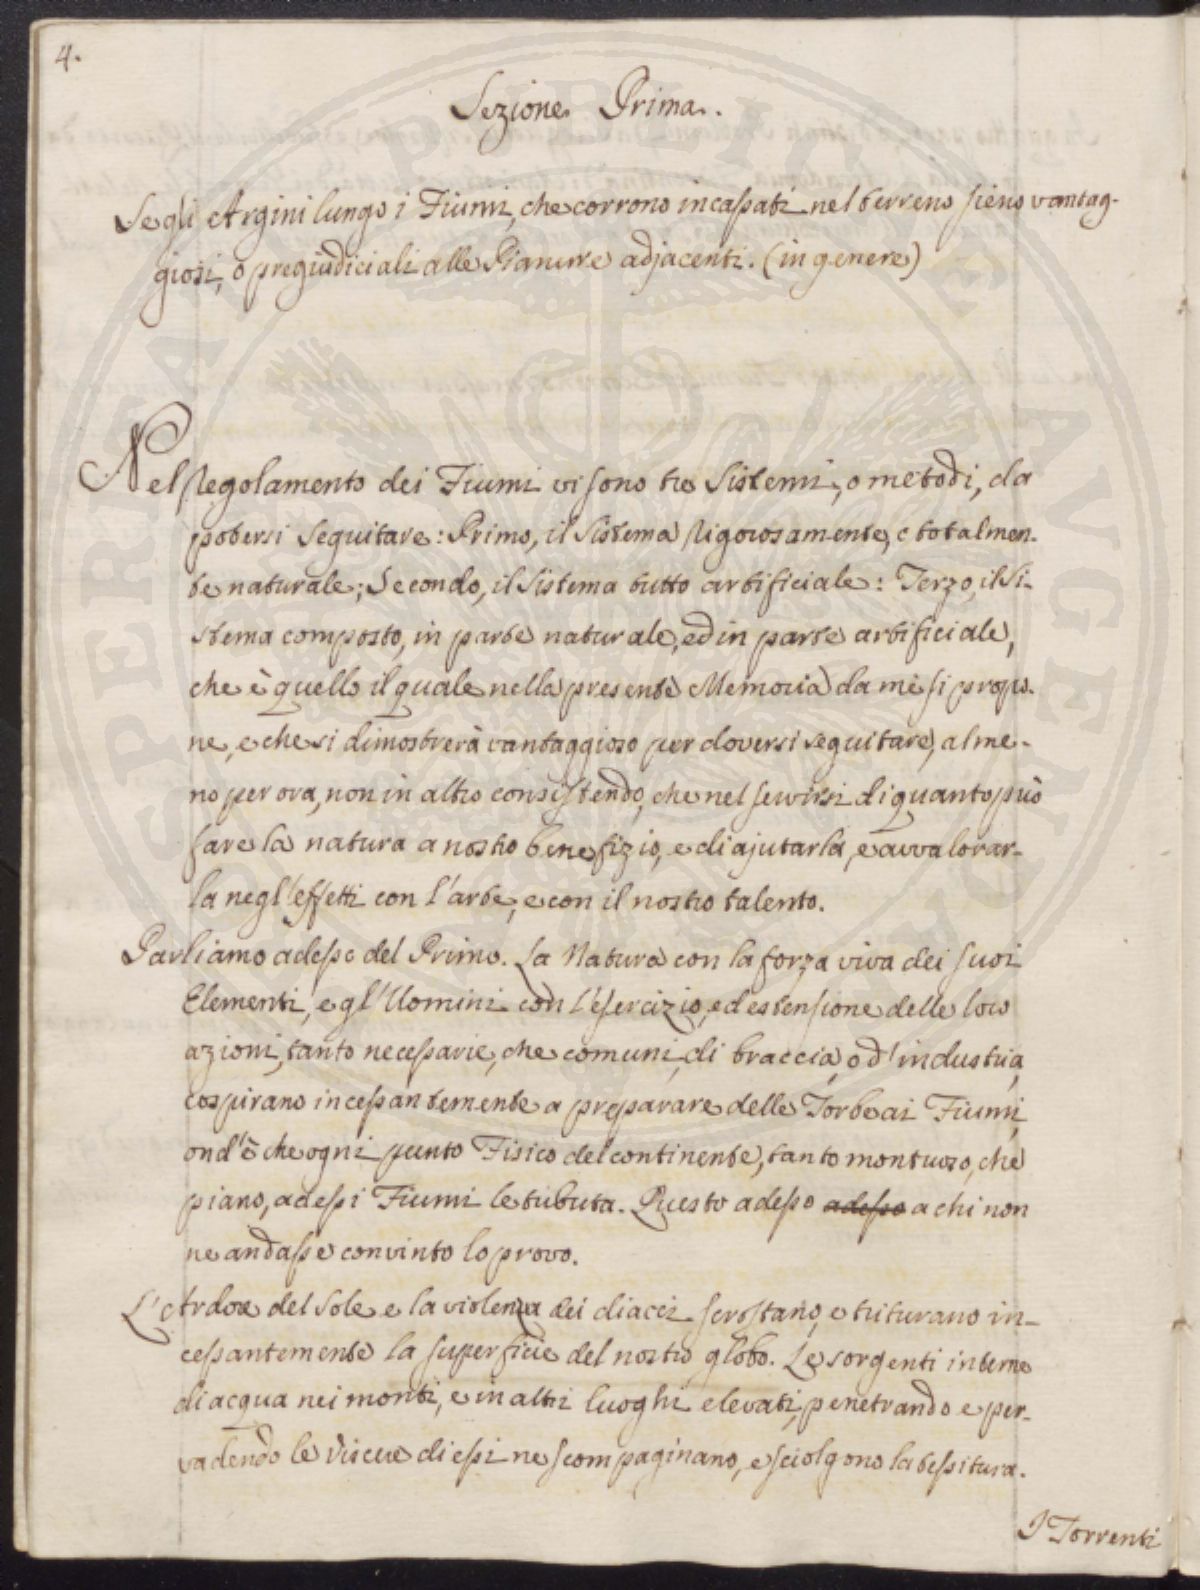 4.
Sezione Prima.
Se gli Argini lungo i Fiumi, che corrono incassati nel terreno sieno vantag-
giosi, o pregiudiciali alle Pianure adjacenti. (in genere)
Nel Regolamento dei Fiumi vi sono tre Sistemi, o metodi, da
potersi seguitare: Primo, il Sistema rigorosamente, e totalmen-
te naturale; Secondo, il Sistema tutto artificiale: Terzo, il Si-
stema composto, in parte naturale, ed in parte artificiale,
che è quello il quale nella presente Memoria da me si propo-
ne, e che si dimostrerà vantaggioso per doversi seguitare, alme-
no per ora, non in altro consistendo, che nel servirsi di quanto può
fare la natura a nostro benefizio, e di ajutarla, e avvalorar-
la negl'effetti con l'arte, e con il nostro talento.
Parliamo adesso del Primo. La Natura con la forza viva dei suoi
Elementi, e gl'Uomini con l'esercizio, ed estensione delle loro
azioni, tanto necessarie, che comuni, di braccia, o d'industria,
cospirano incessantemente a preparare delle Torbe ai Fiumi,
ond'è che ogni punto Fisico del continente, tanto montuoso, che
piano, ad essi Fiumi le tributa. Questo adesso adesso a chi non
ne andasse convinto lo provo.
L'Ardore del Sole e la violenza dei diacci scrostano, e triturano in-
cessantemente la superficie del nostro globo. Le sorgenti interne
di acqua nei monti, e in altri luoghi elevati, penetrando e per-
vadendo le viscere di essi ne scompaginano, e sciolgono la tessitura.
I Torrenti
SPERITAS PUBLICAE AUGENDAE